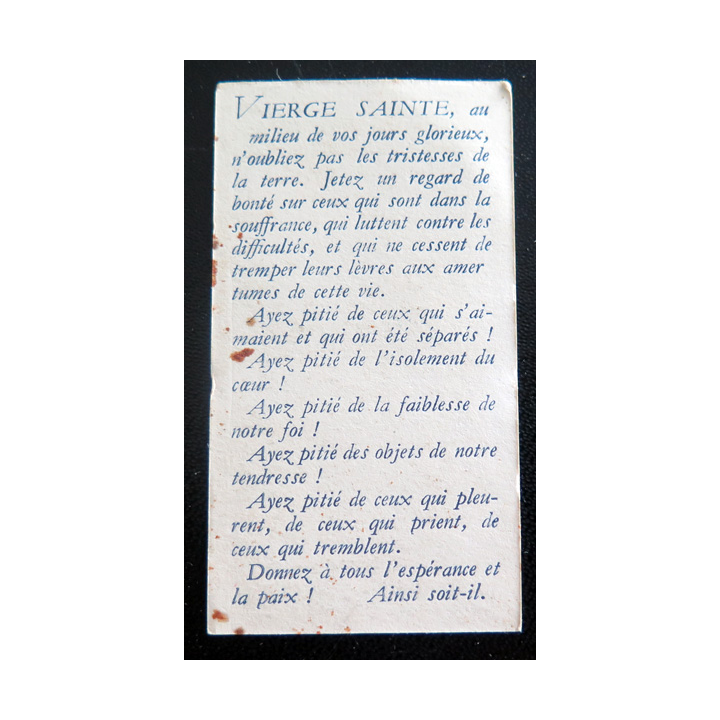 VIERGE SAINTE, au
milieu de vos jours glorieux,
n'oubliez pas les tristesses de
la terre. Jetez un regard de
bonté sur ceux qui sont dans la
souffrance, qui luttent contre les
difficultés, et qui ne cessent de
tremper leurs lèvres aux amer
tumes de cette vie.
Ayez pitié de ceux qui s'ai-
maient et qui ont été séparés !
Ayez pitié de l'isolement du
cœur !
Ayez pitié de la faiblesse de
notre foi !
Ayez pitié des objets de notre
tendresse !
Ayez pitié de ceux qui pleu-
rent, de ceux qui prient, de
ceux qui tremblent.
Donnez à tous l'espérance et
la paix ! Ainsi soit-il.